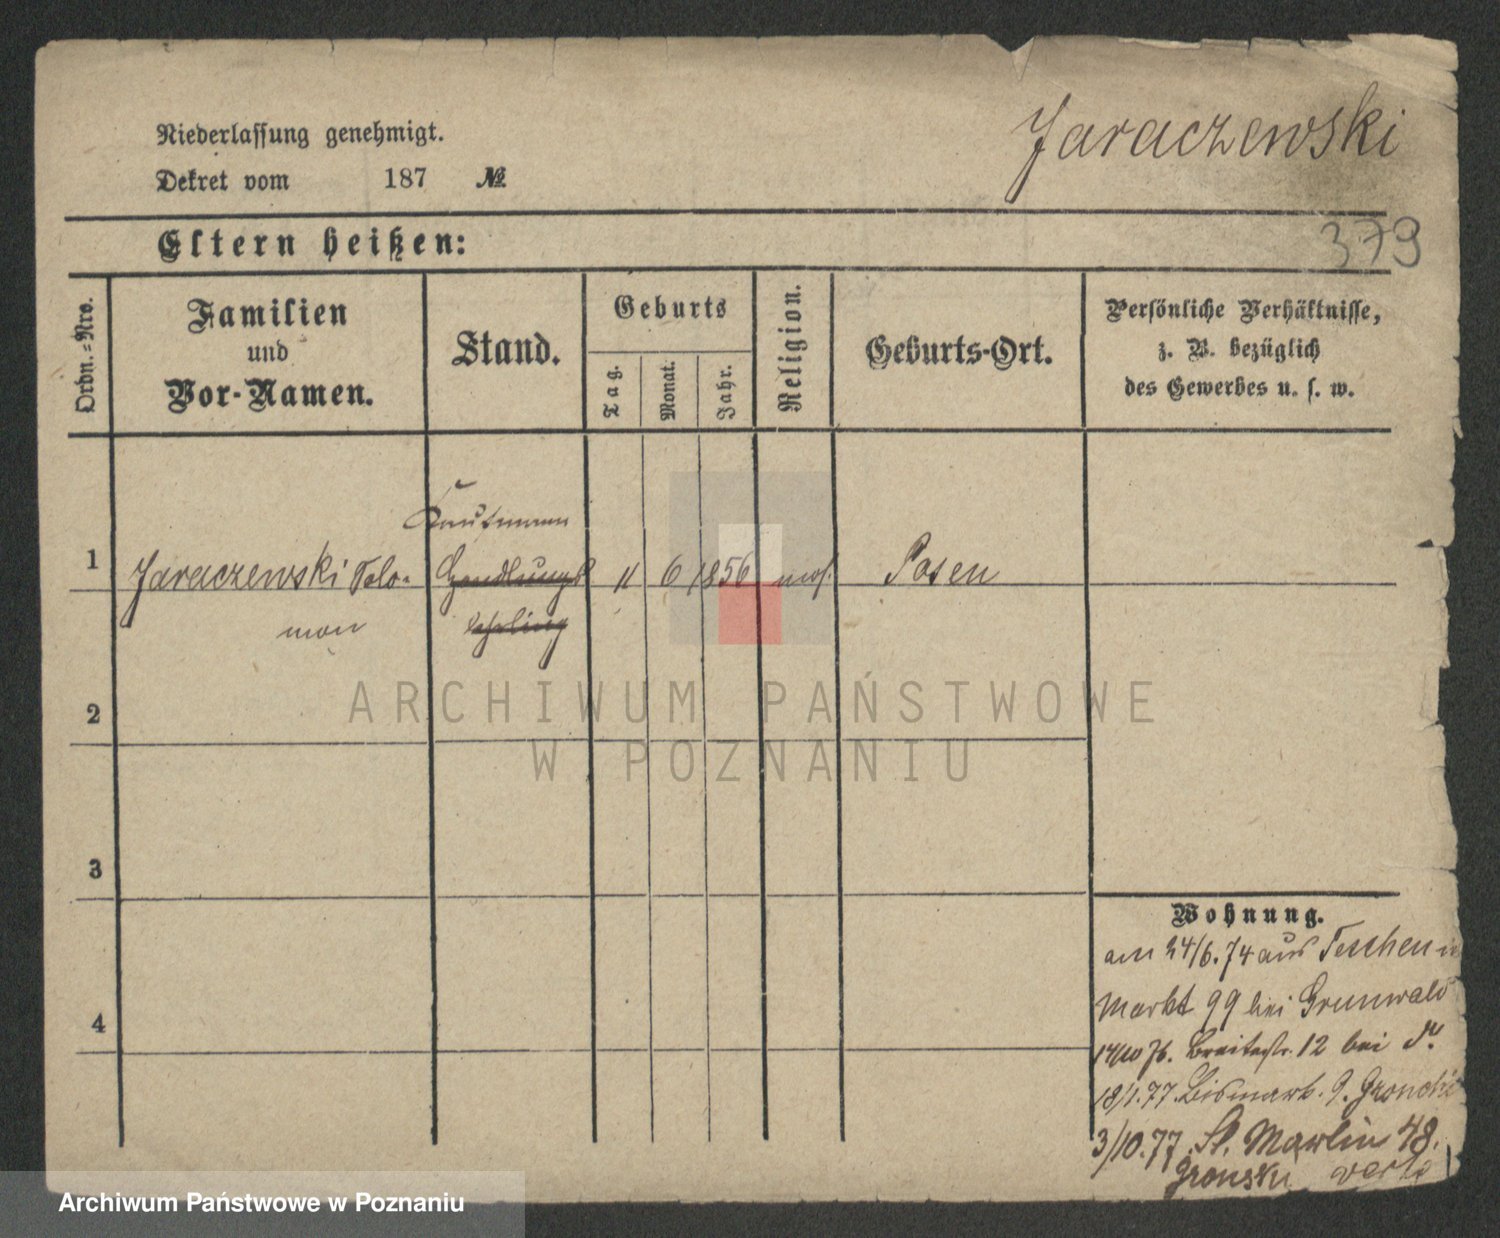 Jaraczewski
Niederlassung genehmigt.
Dekret vom 187 №
379
Eltern heißen:
Ordn.-Nro.
Familien
und
Vor-Namen.
Stand.
Geburts
Tag.
Monat.
Jahr.
Religion.
Geburts-Ort.
Persönliche Verhältnisse,
z. B. bezüglich
des Gewerbes u. s. w.
Kaufmann
1 Jaraczewski Solo- Handlungs 11 6 1856 mos. Posen
mon lehrling
2
3
4
ARCHIWUM PAŃSTWOWE
W POZNANIU
Wohnung.
am 24/6.74 aus
Markt 99 bei Grunwald
14/10 76. Breitestr. 12 bei
18/1.77. Bismark. 9.
3/10.77. St. Martin 48.
Gronski verte
Archiwum Państwowe w Poznaniu